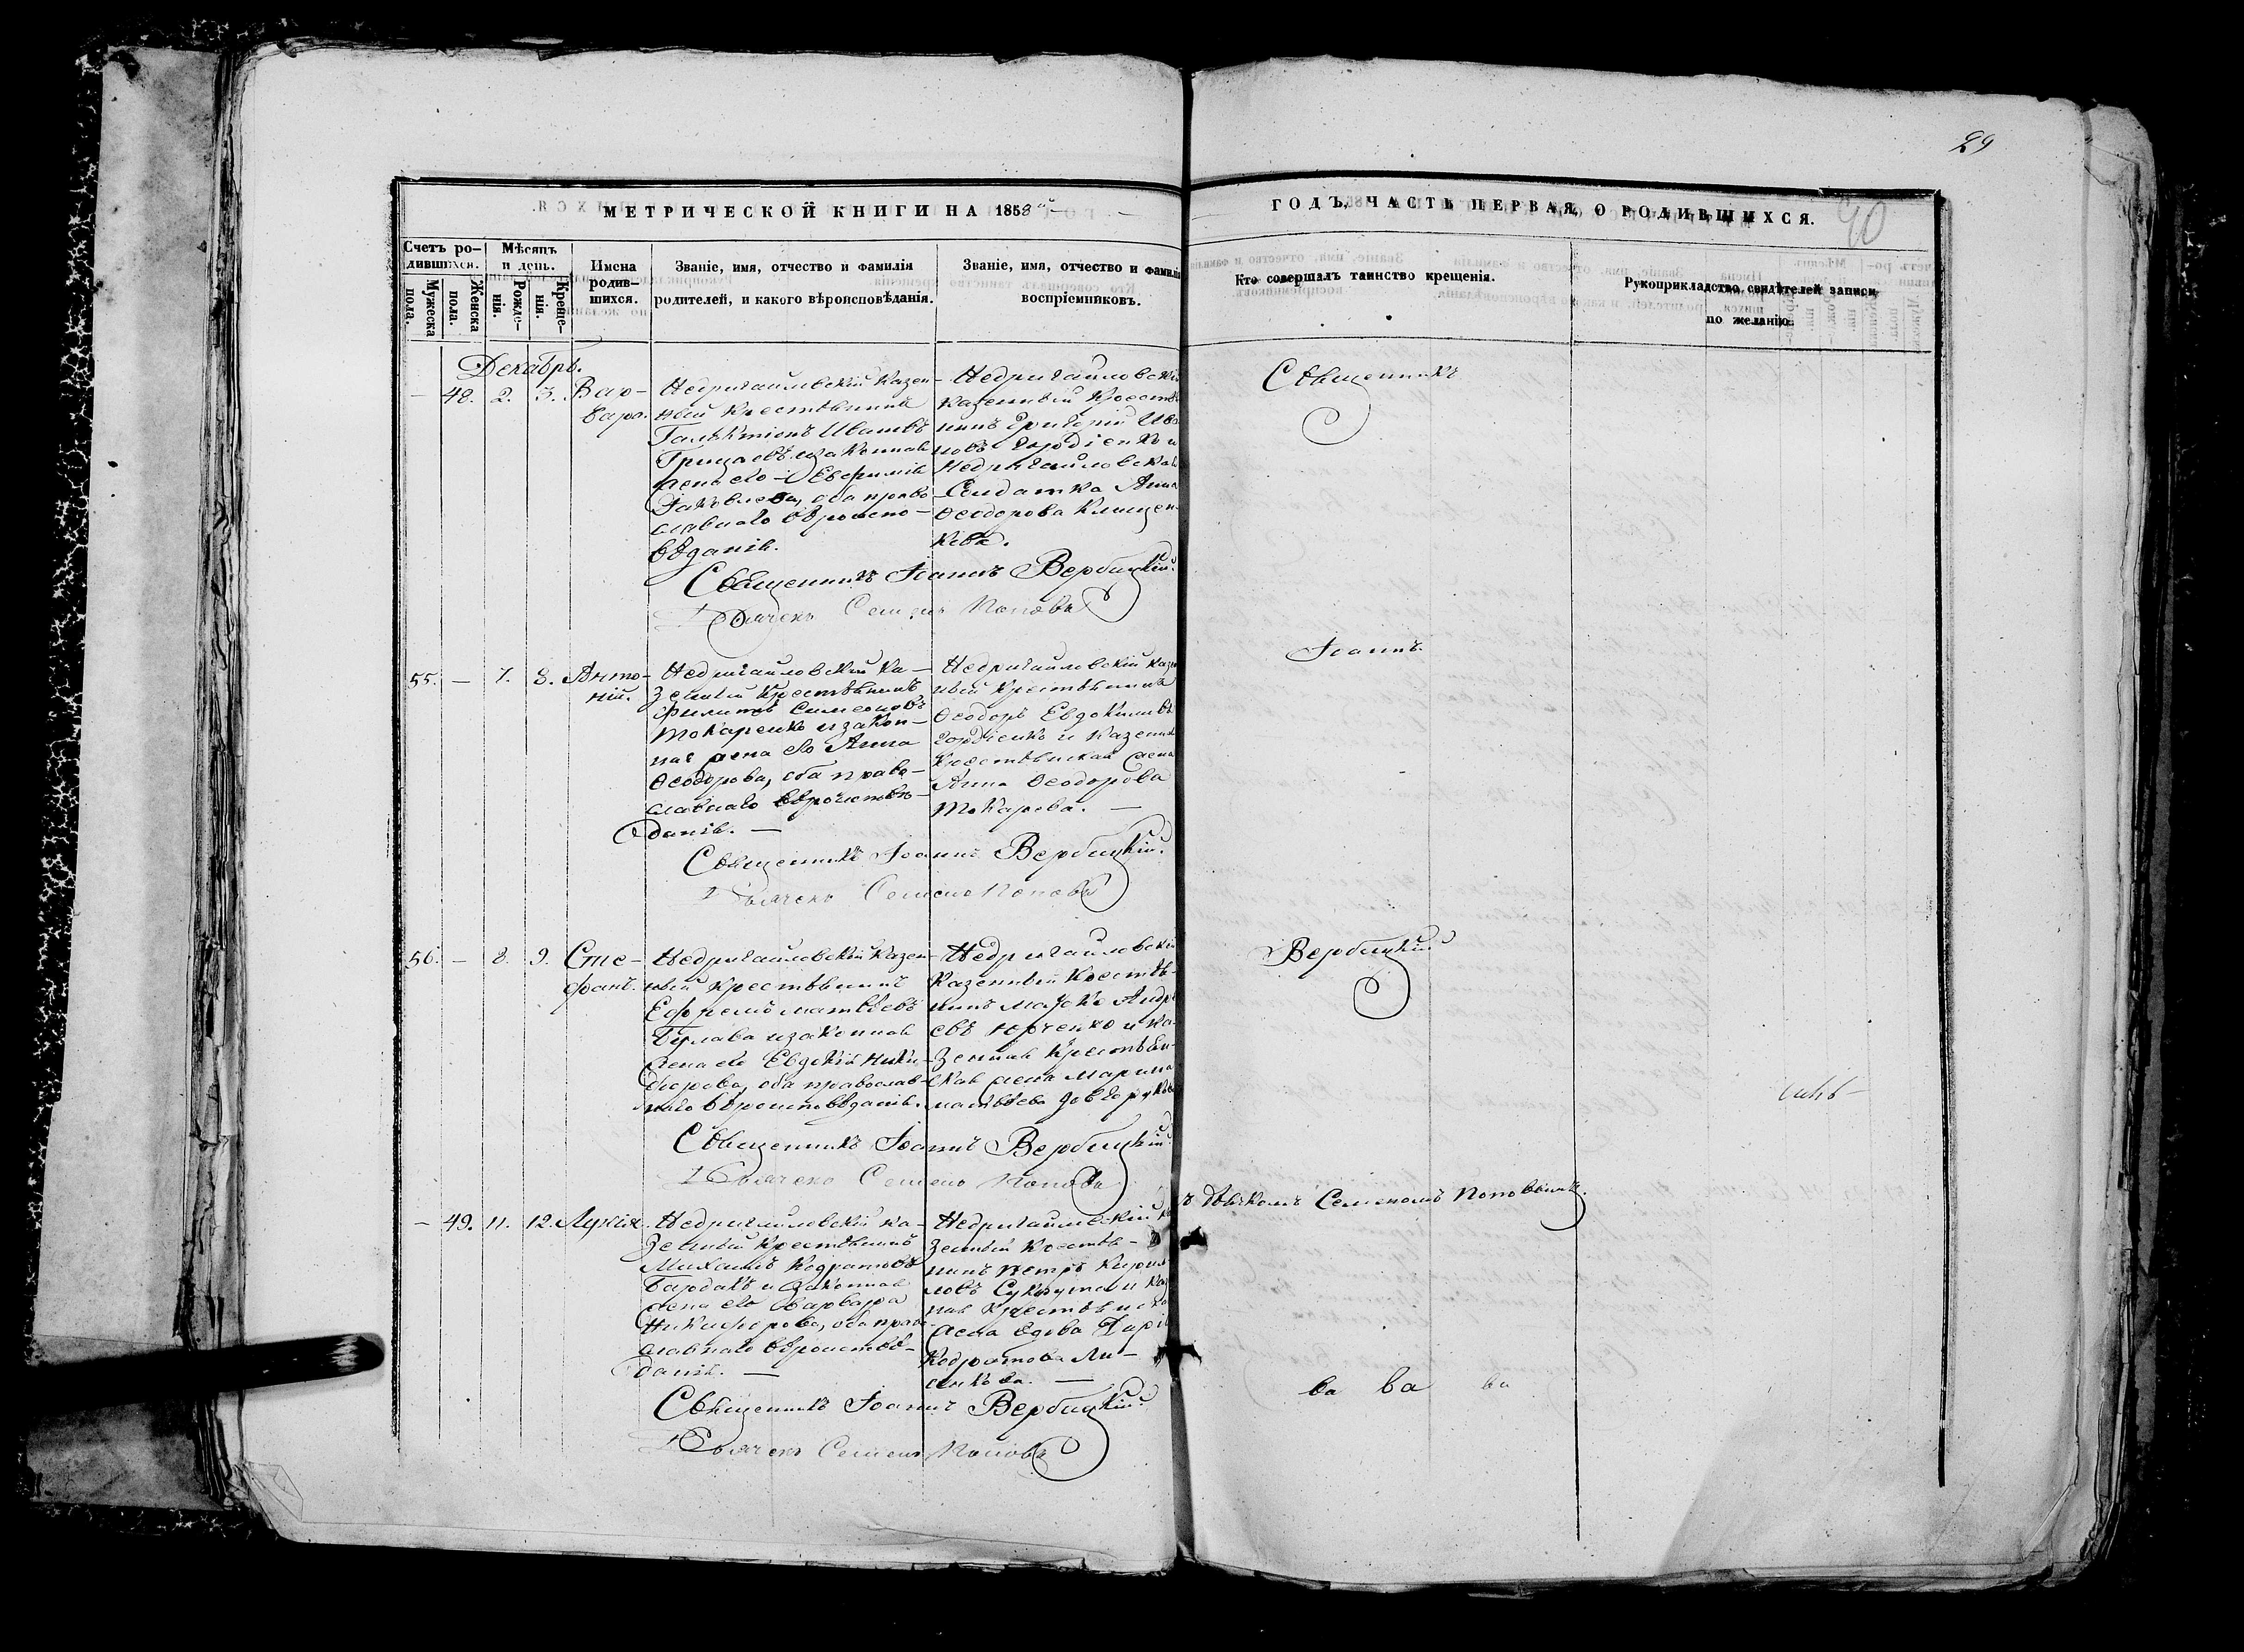 29
40
МЕТРИЧЕСКОЙ КНИГИ НА 1858й
ГОДЪ, ЧАСТЬ ПЕРВАЯ, О РОДИВШИХСЯ.
Счетъ ро-
дившихся.
Мужеска
пола.
Женска
пола.
Мѣсяцъ
и день.
Рожде-
нія.
Креще-
нія.
Имена
родив-
шихся.
Званіе, имя, отчество и фамилія
родителей, и какого вѣроисповѣданія.
Званіе, имя, отчество и фамилія
воспріемниковъ.
Кто совершалъ таинство крещенія.
Рукоприкладство свидѣтелей записи
по желанію.
Декабрь.
— 48. 2. 3. Вар-
вара.
Недригайловскій казен-
ный крестьянинъ
Галактіонъ Ивановъ
Грицаевъ и законная
жена его Евфимія
Іаковлева, оба право-
славнаго вѣроиспо-
вѣданія.
Недригайловскій
казенный крестья-
нинъ Григорій Ива-
новъ Гордіенко и
Недригайловская
Солдатка Анна
Ѳеодорова Клищен-
кова.
Священникъ Іоаннъ Вербицкій.
Дьячекъ Семенъ Поповъ
Священникъ
55. — 7. 8. Анто-
ній.
Недригайловскій ка-
зенный крестьянинъ
Филиппъ Симеоновъ
Токаренко и закон-
ная жена его Анна
Ѳеодорова, оба право-
славнаго вѣроисповѣ-
данія. —
Недригайловскій казен
ный крестьянинъ
Ѳеодоръ Евдокимовъ
Гордіенко и казенная
крестьянская жена
Анна Ѳеодорова
Токарева. —
Священникъ Іоаннъ Вербицкій.
Дьячекъ Семенъ Поповъ
Іоаннъ
56. — 8. 9. Сте-
фанъ.
Недригайловскій казен-
ный крестьянинъ
Ефремъ Матвѣевъ
Булава и законная
жена его Евдокія Ники-
форова, оба православ-
наго вѣроисповѣданія.
Недригайловскій
казенный крестья-
нинъ Андре
евъ Юрченко и ка-
зенная крестьян-
ская жена Марина
Матвѣева
Священникъ Іоаннъ Вербицкій.
Дьячекъ Семенъ Поповъ
Вербицкій
— 49. 11. 12. Лукія.
Недригайловскій ка-
зенный крестьянинъ
Михаилъ Кодратовъ
Бардакъ и законная
жена его Варвара
Никифорова, оба право-
славнаго вѣроисповѣ-
данія. —
Недригайловскій ка
зенный крестья-
нинъ Петръ Кирил
ловъ и каз
ная крестьянска
жена вдова Дарія
Кодратова Ли-
сенкова. —
Священникъ Іоаннъ Вербицкій.
Дьячекъ Семенъ Поповъ
съ дьячкомъ Семеномъ Поповымъ.
ва ва ва